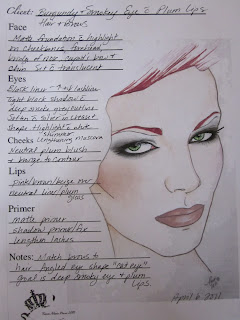 Client: Burgundy & Smokey Eye & Plum Lips
Hair & Brows
Face
Matte foundation & highlight
on cheekbones, forehead,
bridge of nose, cupids bow &
chin. Set & translucent
Eyes
Black liner lashline
light black shadow &
deep smoke grey outline
Satin & silver in crease
shape. Highlight & white
shimmer
Cheeks Lengthening mascara
Neutral plum blush
& bronze to contour
Lips
pink/brown/beige mix
neutral liner/plum
gloss
Primer
matte primer
shadow primer/fix
lengthen lashes
Notes: Match brows to
hair. Angled eye shape "cat eye"
goal is deep smokey eye & plum
lips.
April 6 2011